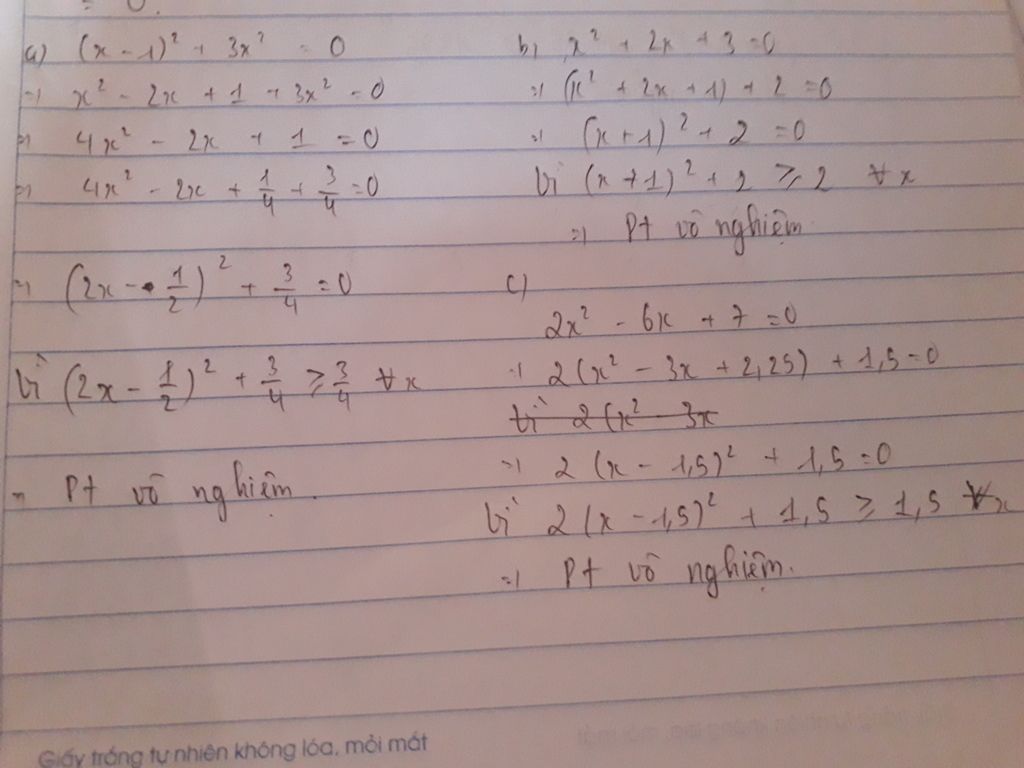 = 0.
a) (x - 1)² + 3x² = 0
=> x² - 2x + 1 + 3x² = 0
=> 4x² - 2x + 1 = 0
=> 4x² - 2x + 1/4 + 3/4 = 0
=> (2x - 1/2)² + 3/4 = 0
Vì (2x - 1/2)² + 3/4 ≥ 3/4 ∀x
=> Pt vô nghiệm.
b) x² + 2x + 3 = 0
=> (x² + 2x + 1) + 2 = 0
=> (x + 1)² + 2 = 0
Vì (x + 1)² + 2 ≥ 2 ∀x
=> Pt vô nghiệm
c)
2x² - 6x + 7 = 0
=> 2(x² - 3x + 2,25) + 1,5 = 0
Vì 2(x² - 3x
=> 2(x - 1,5)² + 1,5 = 0
Vì 2(x - 1,5)² + 1,5 ≥ 1,5 ∀x
=> Pt vô nghiệm.
Giấy trắng tự nhiên không lóa, mỏi mắt